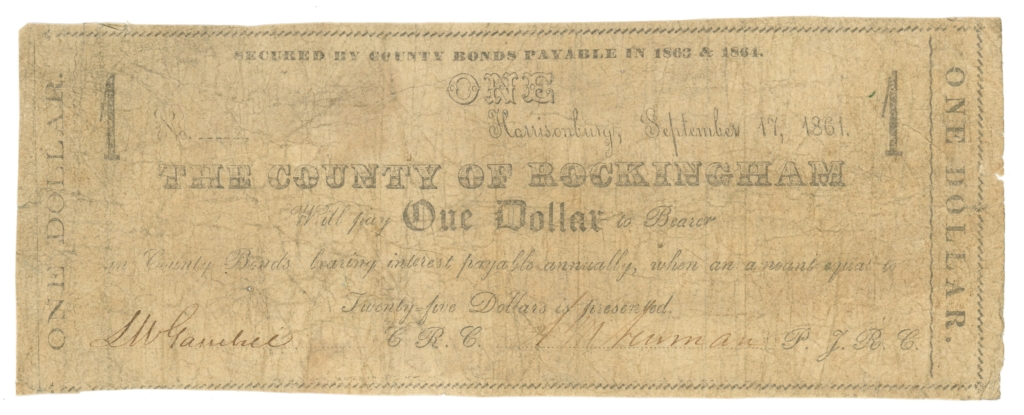 SECURED BY COUNTY BONDS PAYABLE IN 1863 & 1864.
ONE
1
1
No.
Harrisonburg, September 17, 1861.
THE COUNTY OF ROCKINGHAM
Will pay One Dollar to Bearer
in County Bonds bearing interest payable annually, when an amount equal to
Twenty-five Dollars is presented.
C. R. C.
P. J. R. C.
ONE DOLLAR.
ONE DOLLAR.